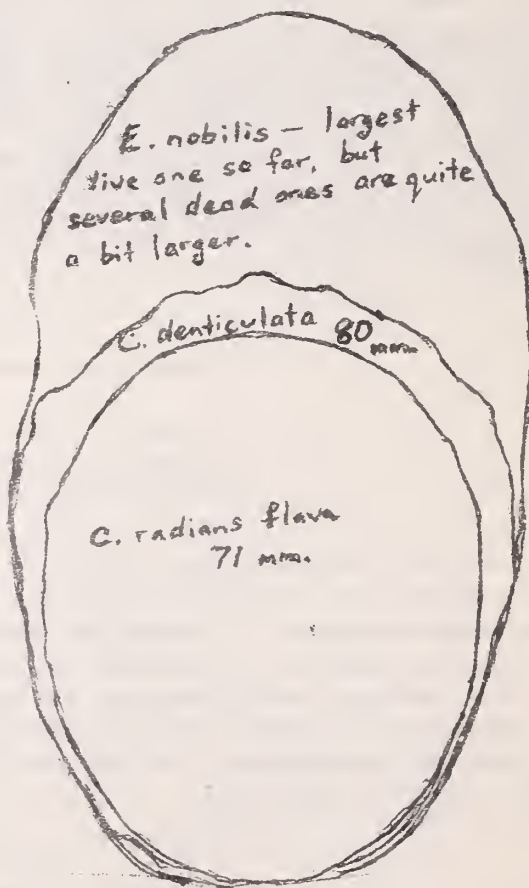 E. nobilis — largest
live one so far, but
several dead ones are quite
a bit larger.
C. denticulata 80 mm.
C. radians flava
71 mm.